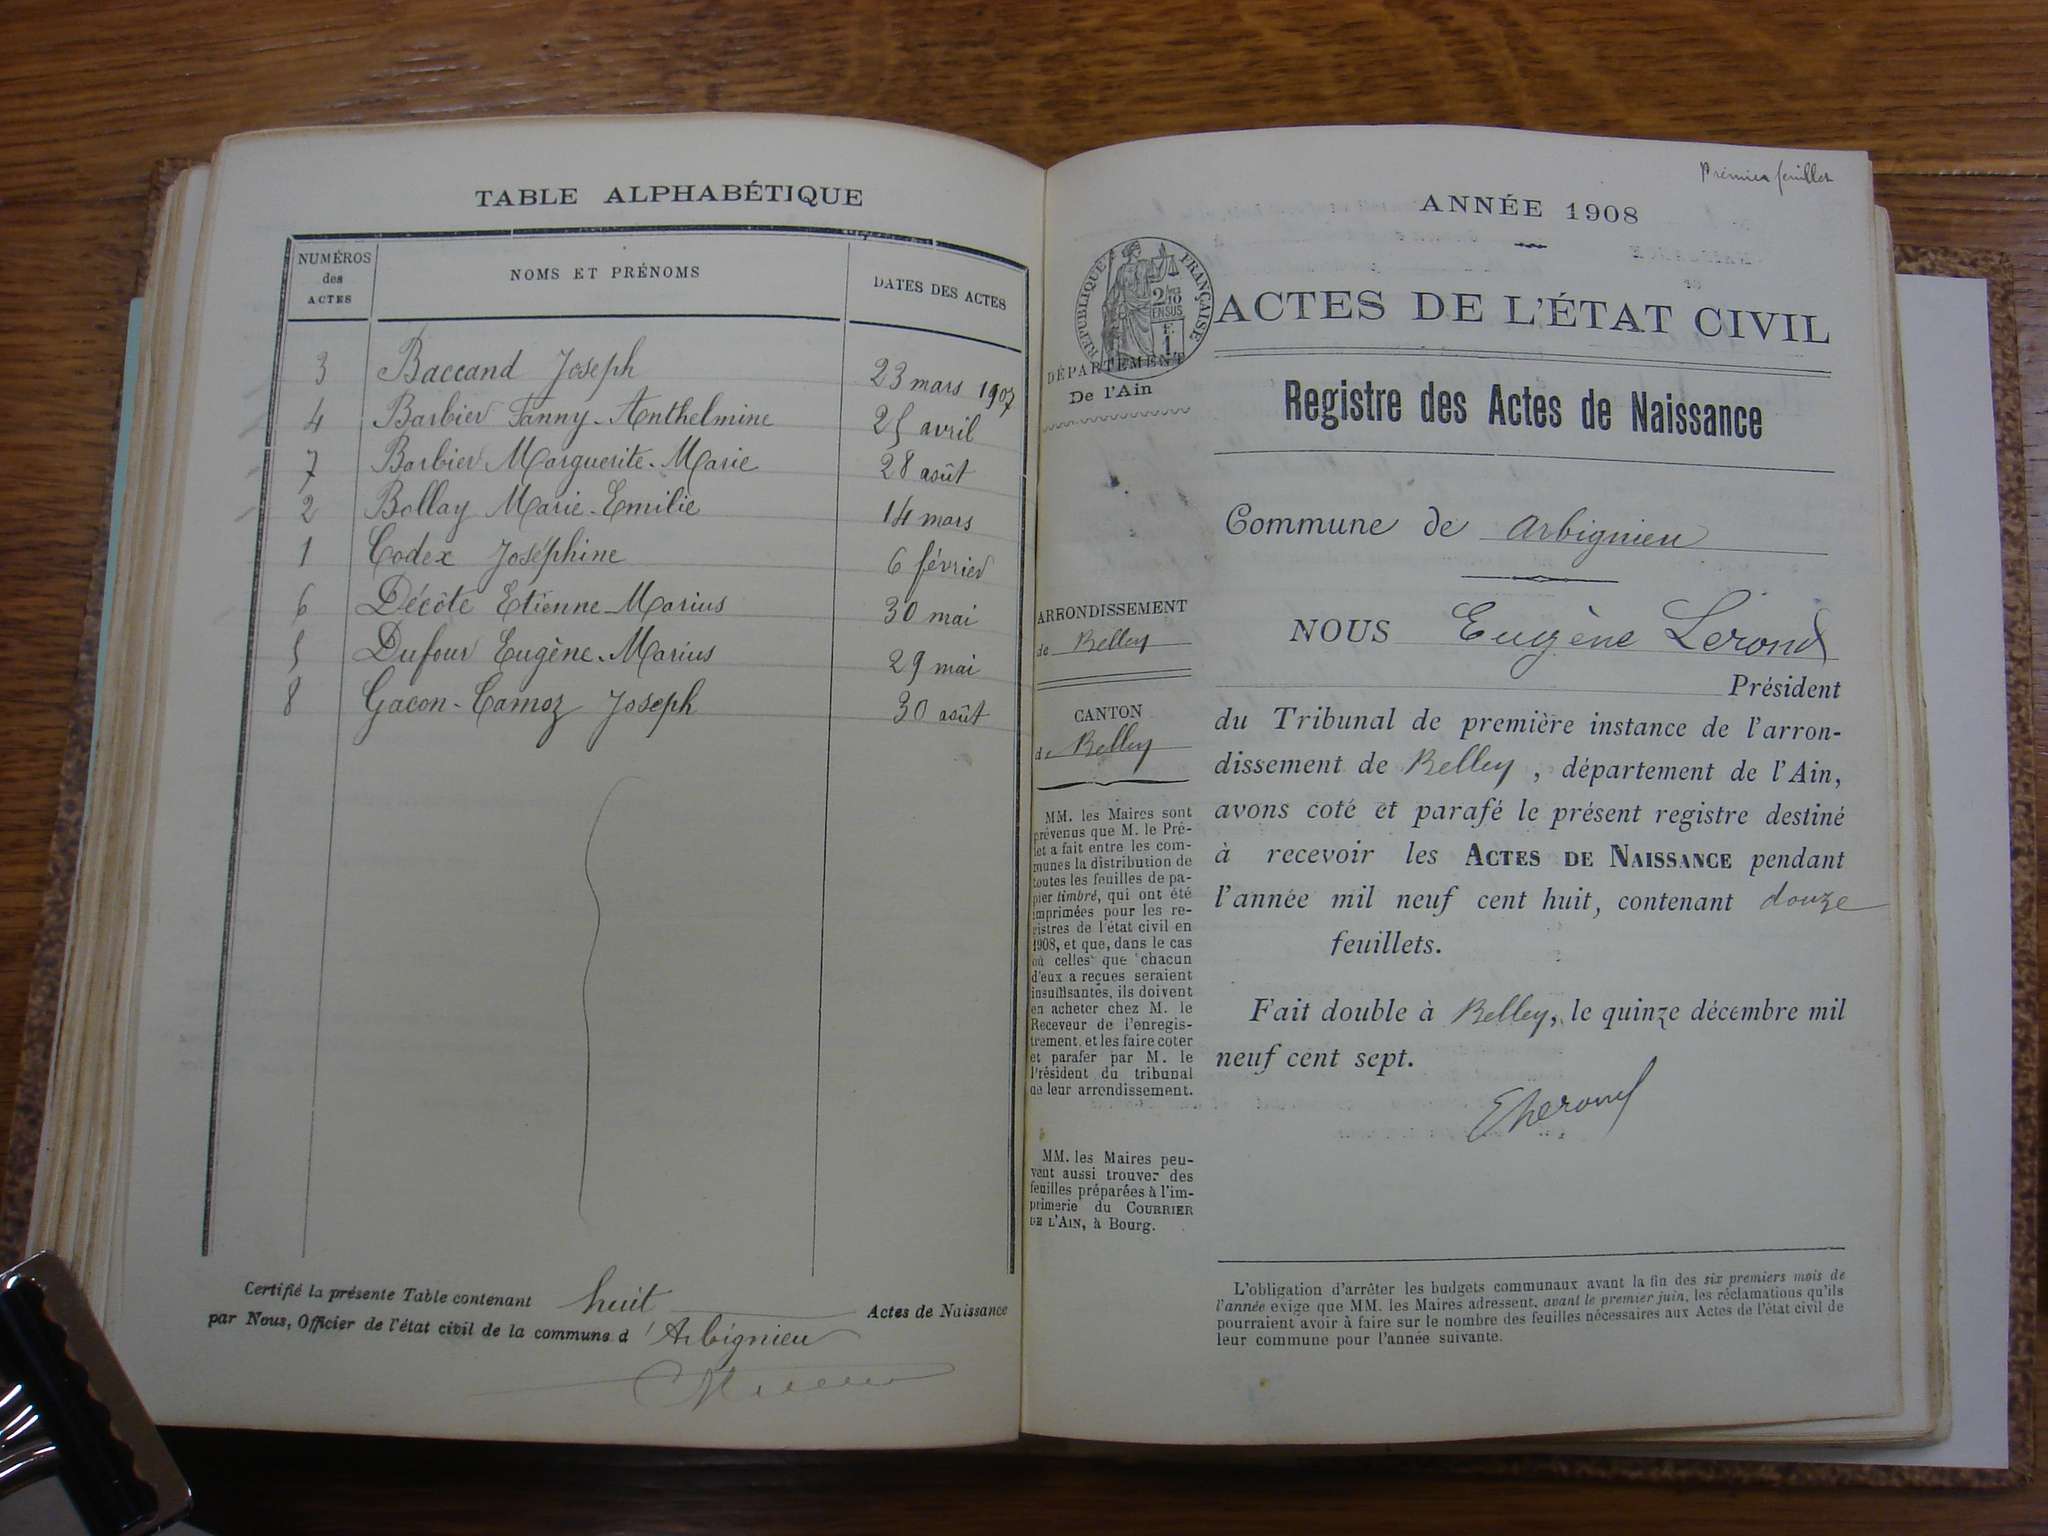 TABLE ALPHABÉTIQUE
NUMÉROS des ACTES
NOMS ET PRÉNOMS
DATES DES ACTES
3 Baccand Joseph 23 mars 1907
4 Barbier Fanny-Anthelmine 25 avril
7 Barbier Marguerite-Marie 28 août
2 Bollay Marie-Emilie 14 mars
1 Codex Joséphine 6 février
6 Décôte Etienne-Marius 30 mai
5 Dufour Eugène-Marius 29 mai
8 Gacon-Camoz Joseph 30 août
Certifié la présente Table contenant huit Actes de Naissance
par Nous, Officier de l'état civil de la commune d'Arbignieu
Premier feuillet
ANNÉE 1908
RÉPUBLIQUE FRANÇAISE
2/10
EN SUS
1F
ACTES DE L'ÉTAT CIVIL
DÉPARTEMENT
De l'Ain
Registre des Actes de Naissance
Commune de Arbignieu
ARRONDISSEMENT
de Belley
CANTON
de Belley
MM. les Maires sont
prévenus que M. le Pré-
fet a fait entre les com-
munes la distribution de
toutes les feuilles de pa-
pier timbré, qui ont été
imprimées pour les re-
gistres de l'état civil en
1908, et que, dans le cas
où celles que chacun
d'eux a reçues seraient
insuffisantes, ils doivent
en acheter chez M. le
Receveur de l'enregis-
trement, et les faire coter
et parafer par M. le
Président du tribunal
de leur arrondissement.
MM. les Maires peu-
vent aussi trouver des
feuilles préparées à l'im-
primerie du COURRIER
DE L'AIN, à Bourg.
NOUS Eugène Lerond
Président
du Tribunal de première instance de l'arron-
dissement de Belley, département de l'Ain,
avons coté et parafé le présent registre destiné
à recevoir les ACTES DE NAISSANCE pendant
l'année mil neuf cent huit, contenant douze
feuillets.
Fait double à Belley, le quinze décembre mil
neuf cent sept.
ELerond
L'obligation d'arrêter les budgets communaux avant la fin des six premiers mois de
l'année exige que MM. les Maires adressent, avant le premier juin, les réclamations qu'ils
pourraient avoir à faire sur le nombre des feuilles nécessaires aux Actes de l'état civil de
leur commune pour l'année suivante.